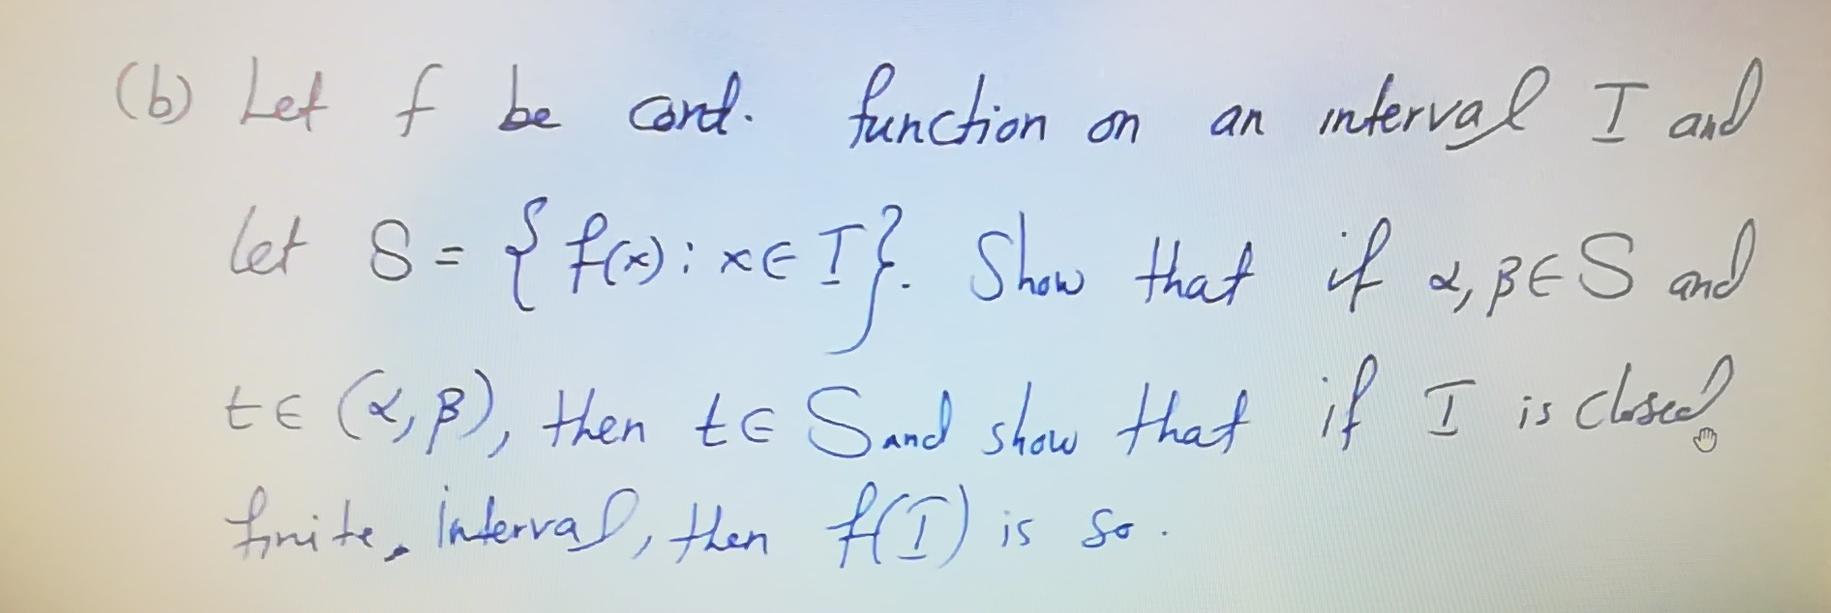 (b) Let f be cont. function on an interval I and
let S = { f(x) : x ∈ I }. Show that if α, β ∈ S and
t ∈ (α, β), then t ∈ S and show that if I is closed
finite, interval, then f(I) is so.